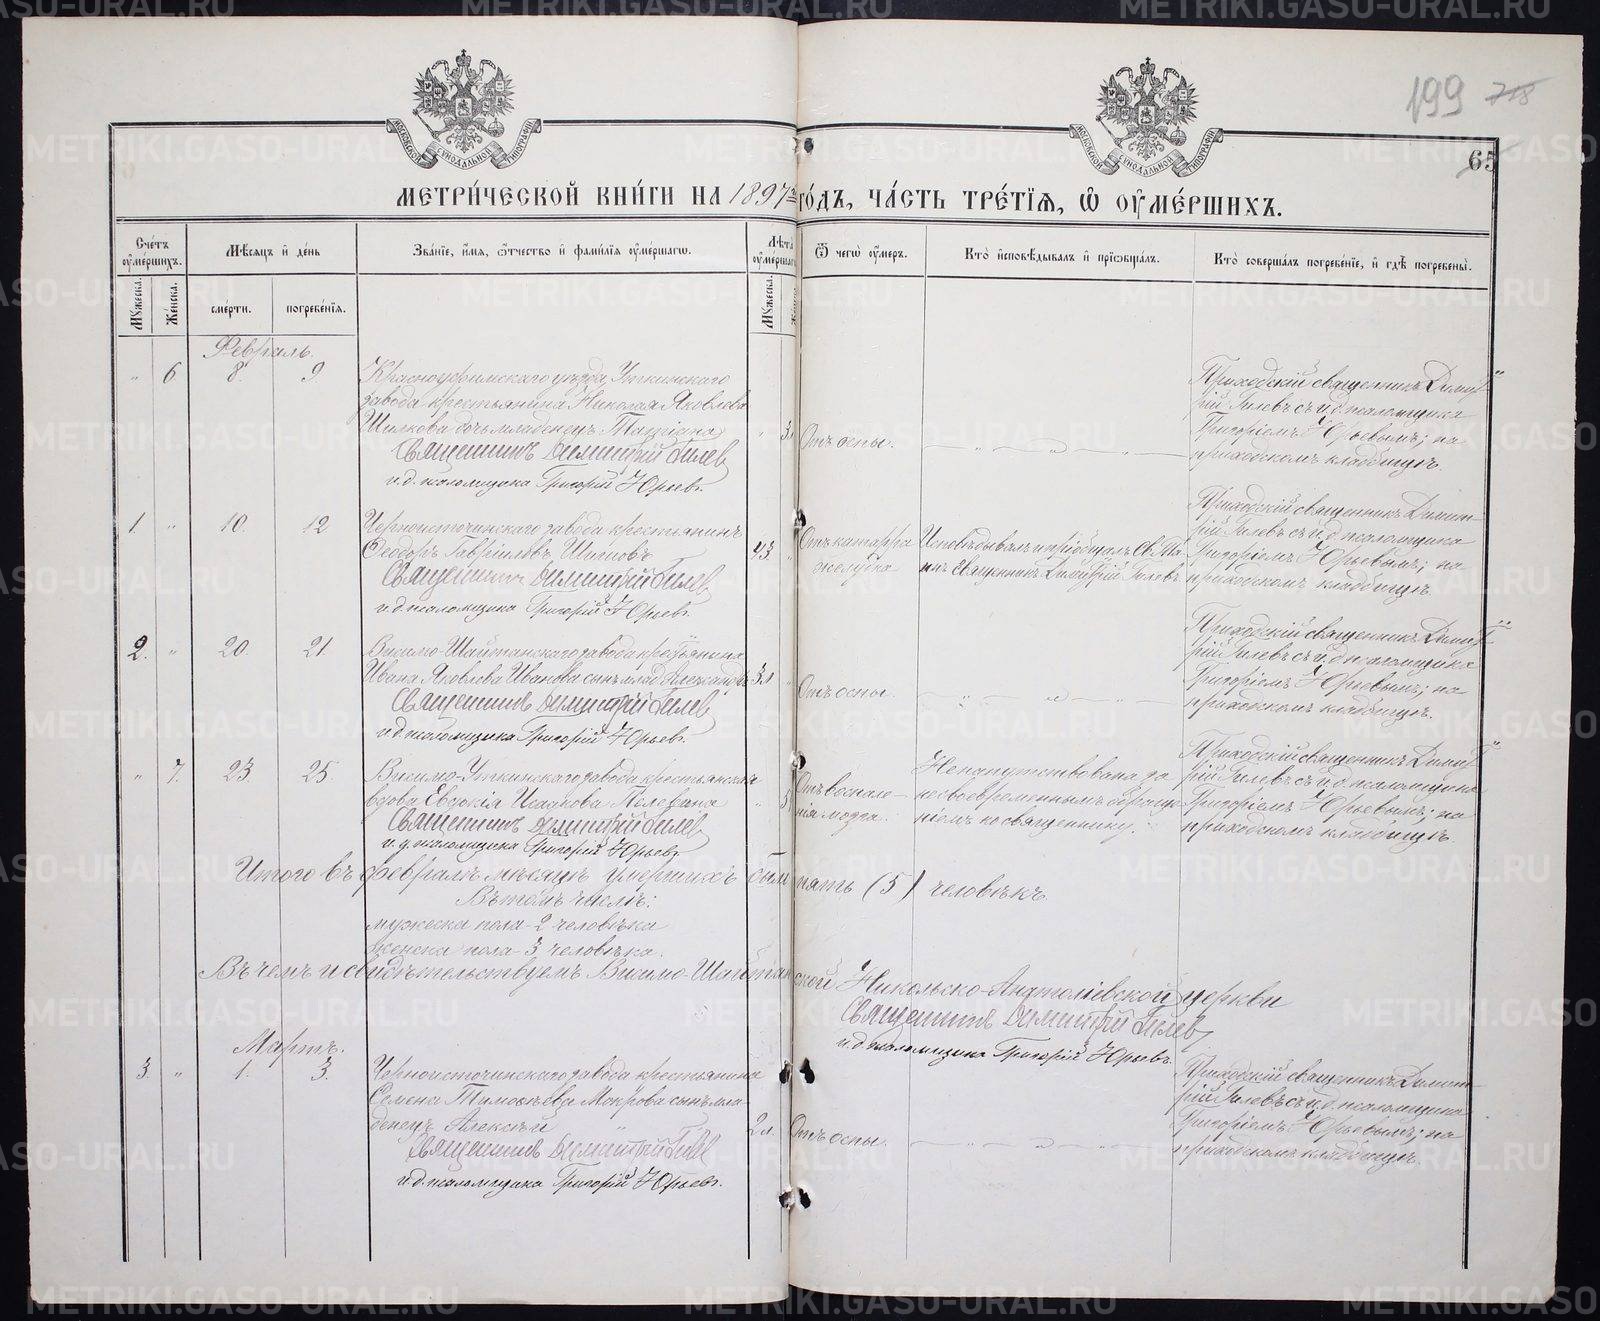 199 718
65
МОСКОВСКОЙ СУНОДАЛЬНОЙ ТИПОГРАФІИ
МОСКОВСКОЙ СУНОДАЛЬНОЙ ТИПОГРАФІИ
МЕТРИ́ЧЕСКОЙ КНИ́ГИ НА 1897 й ГО́ДЪ, ЧА́СТЬ ТРЕ́ТІѦ, Ѽ ОУ҆МЕ́РШИХЪ.
Сче́тъ оу҆ме́ршихъ.
Мѣсяцъ и҆ де́нь
Зва́ніе, и҆́мя, ѻ҆́тчество и҆ фами́лія оу҆ме́ршагѡ.
Лѣта оу҆ме́ршагѡ
Ѿ чегѡ̀ оу҆́меръ.
Кто̀ и҆сповѣ́дывалъ и҆ прїѡбща́лъ.
Кто̀ соверша́лъ погребе́ніе, и҆ гдѣ̀ погребены̀.
Мꙋжеска.
Же́нска.
сме́рти.
погребе́нія.
Мꙋжеска.
Февраль.
" 6 8. 9
Красноуфимскаго уѣзда, Уткинскаго
завода крестьянина Николая Яковлева
Шилкова дочь младенецъ Татіана
Священникъ Димитрій Гилев
и.д. псаломщика Григорій Юрьевъ.
Отъ оспы.
Приходскій священникъ Димит-
рій Гилевъ съ и.д. псаломщика
Григоріемъ Юрьевымъ; на
приходскомъ кладбищѣ.
1. " 10. 12
Черноисточинскаго завода крестьянинъ
Ѳеодоръ Гавріиловъ Шишовъ
Священникъ Димитрій Гилев
и.д. псаломщика Григорій Юрьевъ.
43 "
Отъ катарра
желудка
Исповѣдывалъ и пріобщалъ Св. Та-
инъ священникъ Димитрій Гилевъ
Приходскій священникъ Димит-
рій Гилевъ съ и.д. псаломщика
Григоріемъ Юрьевымъ; на
приходскомъ кладбищѣ.
2. " 20. 21.
Висимо-Шайтанскаго завода крестьянина
Ивана Яковлева Иванова сынъ млад. Александръ
Священникъ Димитрій Гилев
и.д. псаломщика Григорій Юрьевъ.
Отъ оспы.
Приходскій священникъ Димит-
рій Гилевъ съ и.д. псаломщика
Григоріемъ Юрьевымъ; на
приходскомъ кладбищѣ.
" 7. 23. 25.
Висимо-Уткинскаго завода крестьянская
вдова Евдокія Исаакова
Священникъ Димитрій Гилев
и.д. псаломщика Григорій Юрьевъ.
Отъ воспале-
нія мозга.
Ненапутствована за
несвоевременнымъ обраще-
ніемъ ко священнику.
Приходскій священникъ Димит-
рій Гилевъ съ и.д. псаломщика
Григоріемъ Юрьевымъ; на
приходскомъ кладбищѣ.
Итого въ февралѣ мѣсяцѣ умершихъ было пять (5) человѣкъ.
Въ томъ числѣ:
мужеска пола - 2 человѣка
женска пола - 3 человѣка.
Въ чемъ и свидѣтельствуемъ Висимо-Шайтанской Никольско-Анатоліевской церкви
Священникъ Димитрій Гилев
и.д. псаломщика Григорій Юрьевъ.
Мартъ.
3. " 1. 3.
Черноисточинскаго завода крестьянина
Семена Тимоѳѣева Мокрова сынъ мла-
денецъ Алексѣй
Священникъ Димитрій Гилев
и.д. псаломщика Григорій Юрьевъ.
Отъ оспы.
Приходскій священникъ Димит-
рій Гилевъ съ и.д. псаломщика
Григоріемъ Юрьевымъ; на
приходскомъ кладбищѣ.
METRIKI.GASO-URAL.RU